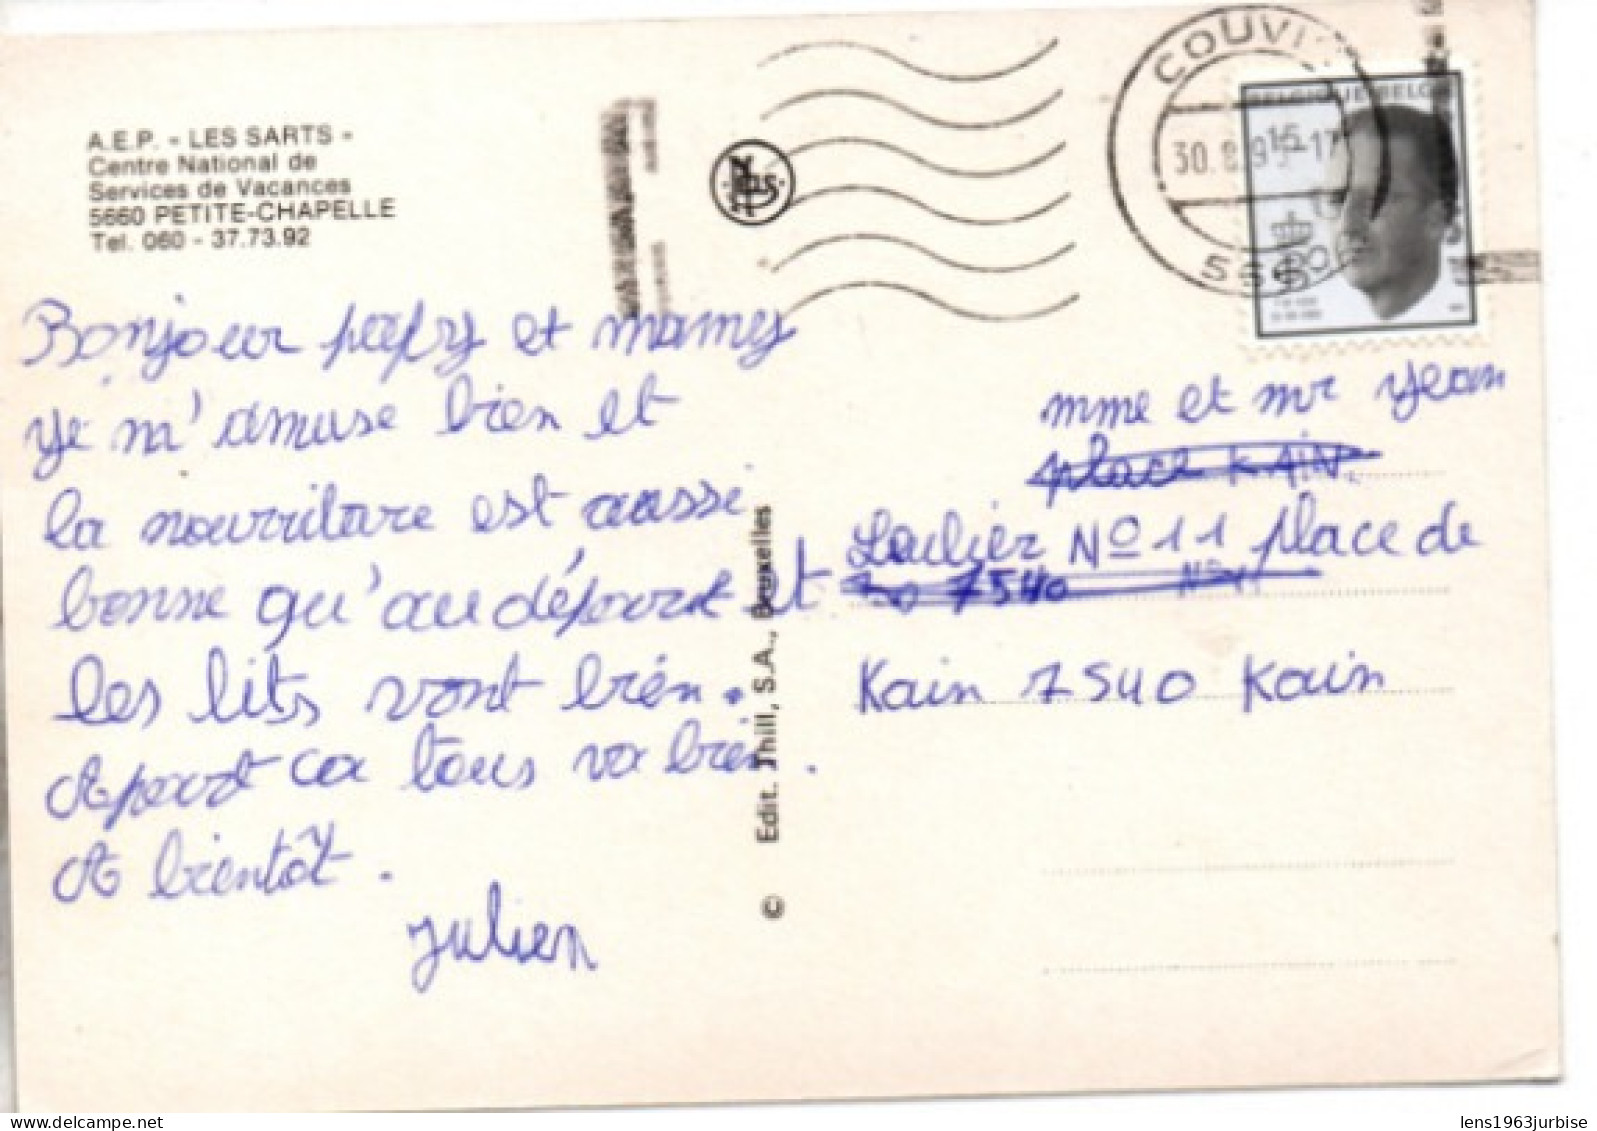 A.E.P. - LES SARTS -
Centre National de
Services de Vacances
5660 PETITE-CHAPELLE
Tel. 060 - 37.73.92
COUVI
30.8.9 -17
BELGIQUE BELG
15
Bonjour papy et mamy
Je m'amuse bien et
la nourriture est aussi
bonne qu'au départ et
les lits vont bien.
A part ca tous va bien.
A bientôt.
Julien
Edit. Thill, S.A., Bruxelles
©
mme et mr Jean
place KAIN
Loulier No 11 place de
7540 No 11
Kain 7540 Kain
lens1963jurbise